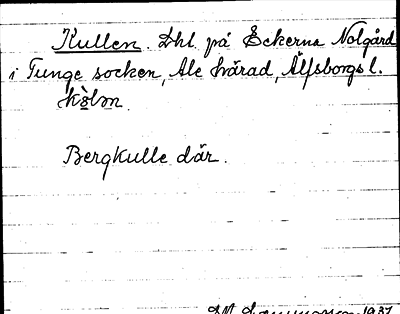 Kullen. Dhl. på Eckerna Nolgård
i Tunge socken, Ale härad, Älfsborgs l.
kòlɷn.
Bergkulle där.
1937